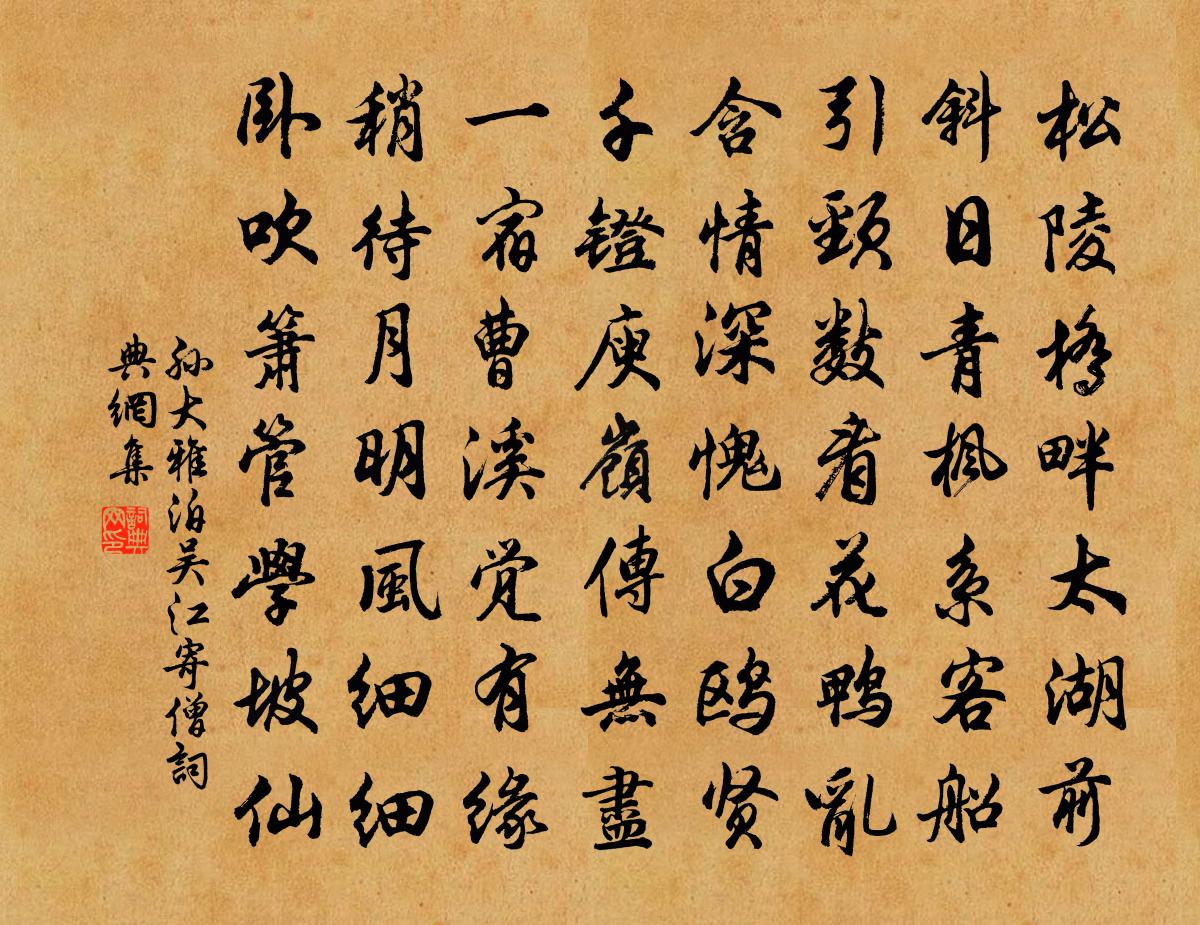 松陵橋畔太湖前
斜日青楓系客船
引頸數看花鴨亂
含情深愧白鸥贤
千鐙庾嶺傳無盡
一宿曹溪觉有緣
稍待月明風细细
卧吹簫管學坡仙
孙大雅泊吴江寄僧詞
典網集
詞典
网印